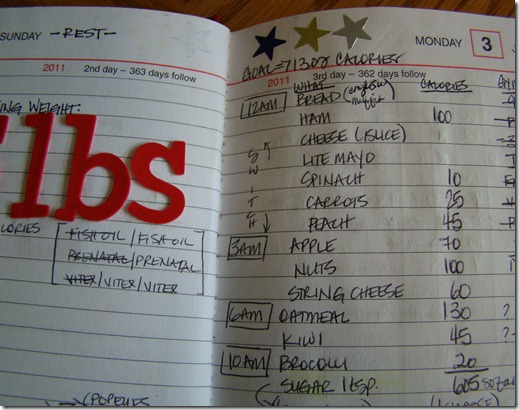 SUNDAY -REST-
2011 2nd day – 363 days follow
WEIGHT:
lbs
FISH OIL / FISH OIL
PRENATAL / PRENATAL
VITEX / VITEX / VITEX
MONDAY 3
GOAL = 1300 CALORIES
2011 3rd day – 362 days follow
WHAT CALORIES
12AM BREAD (english muffin)
HAM 100
CHEESE (1 SLICE)
LITE MAYO
SPINACH 10
CARROTS 25
PEACH 45
SWITCH
3AM APPLE 70
NUTS 100
STRING CHEESE 60
6AM OATMEAL 130 ?
KIWI 45 ?
10AM BROCOLLI 20
SUGAR 1 tsp. 605 so far